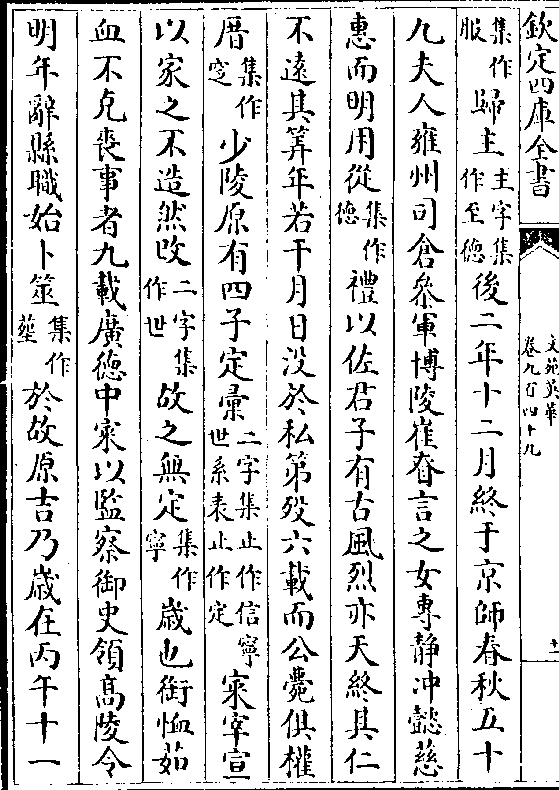 欽定四庫全書
文苑英華
卷九百四十九
十
服集作歸主主字集作至德後二年十二月終于京師春秋五十
九夫人雍州司倉叅軍博陵崔眘言之女專静冲懿慈
惠而明用從集作德禮以佐君子有古風烈亦天終其仁
不遠其筭年若干月日没於私第殁六載而公薨俱權
厝集作窆少陵原有四子定彚二字集止作信寧世系表止作定寀宰宣
以家之不造然改二字集作世故之無定集作寧歳也銜恤茹
血不克喪事者九載廣德中寀以監察御史領髙陵令
明年辭縣職始卜筮集作塟於故原吉乃歳在丙午十一